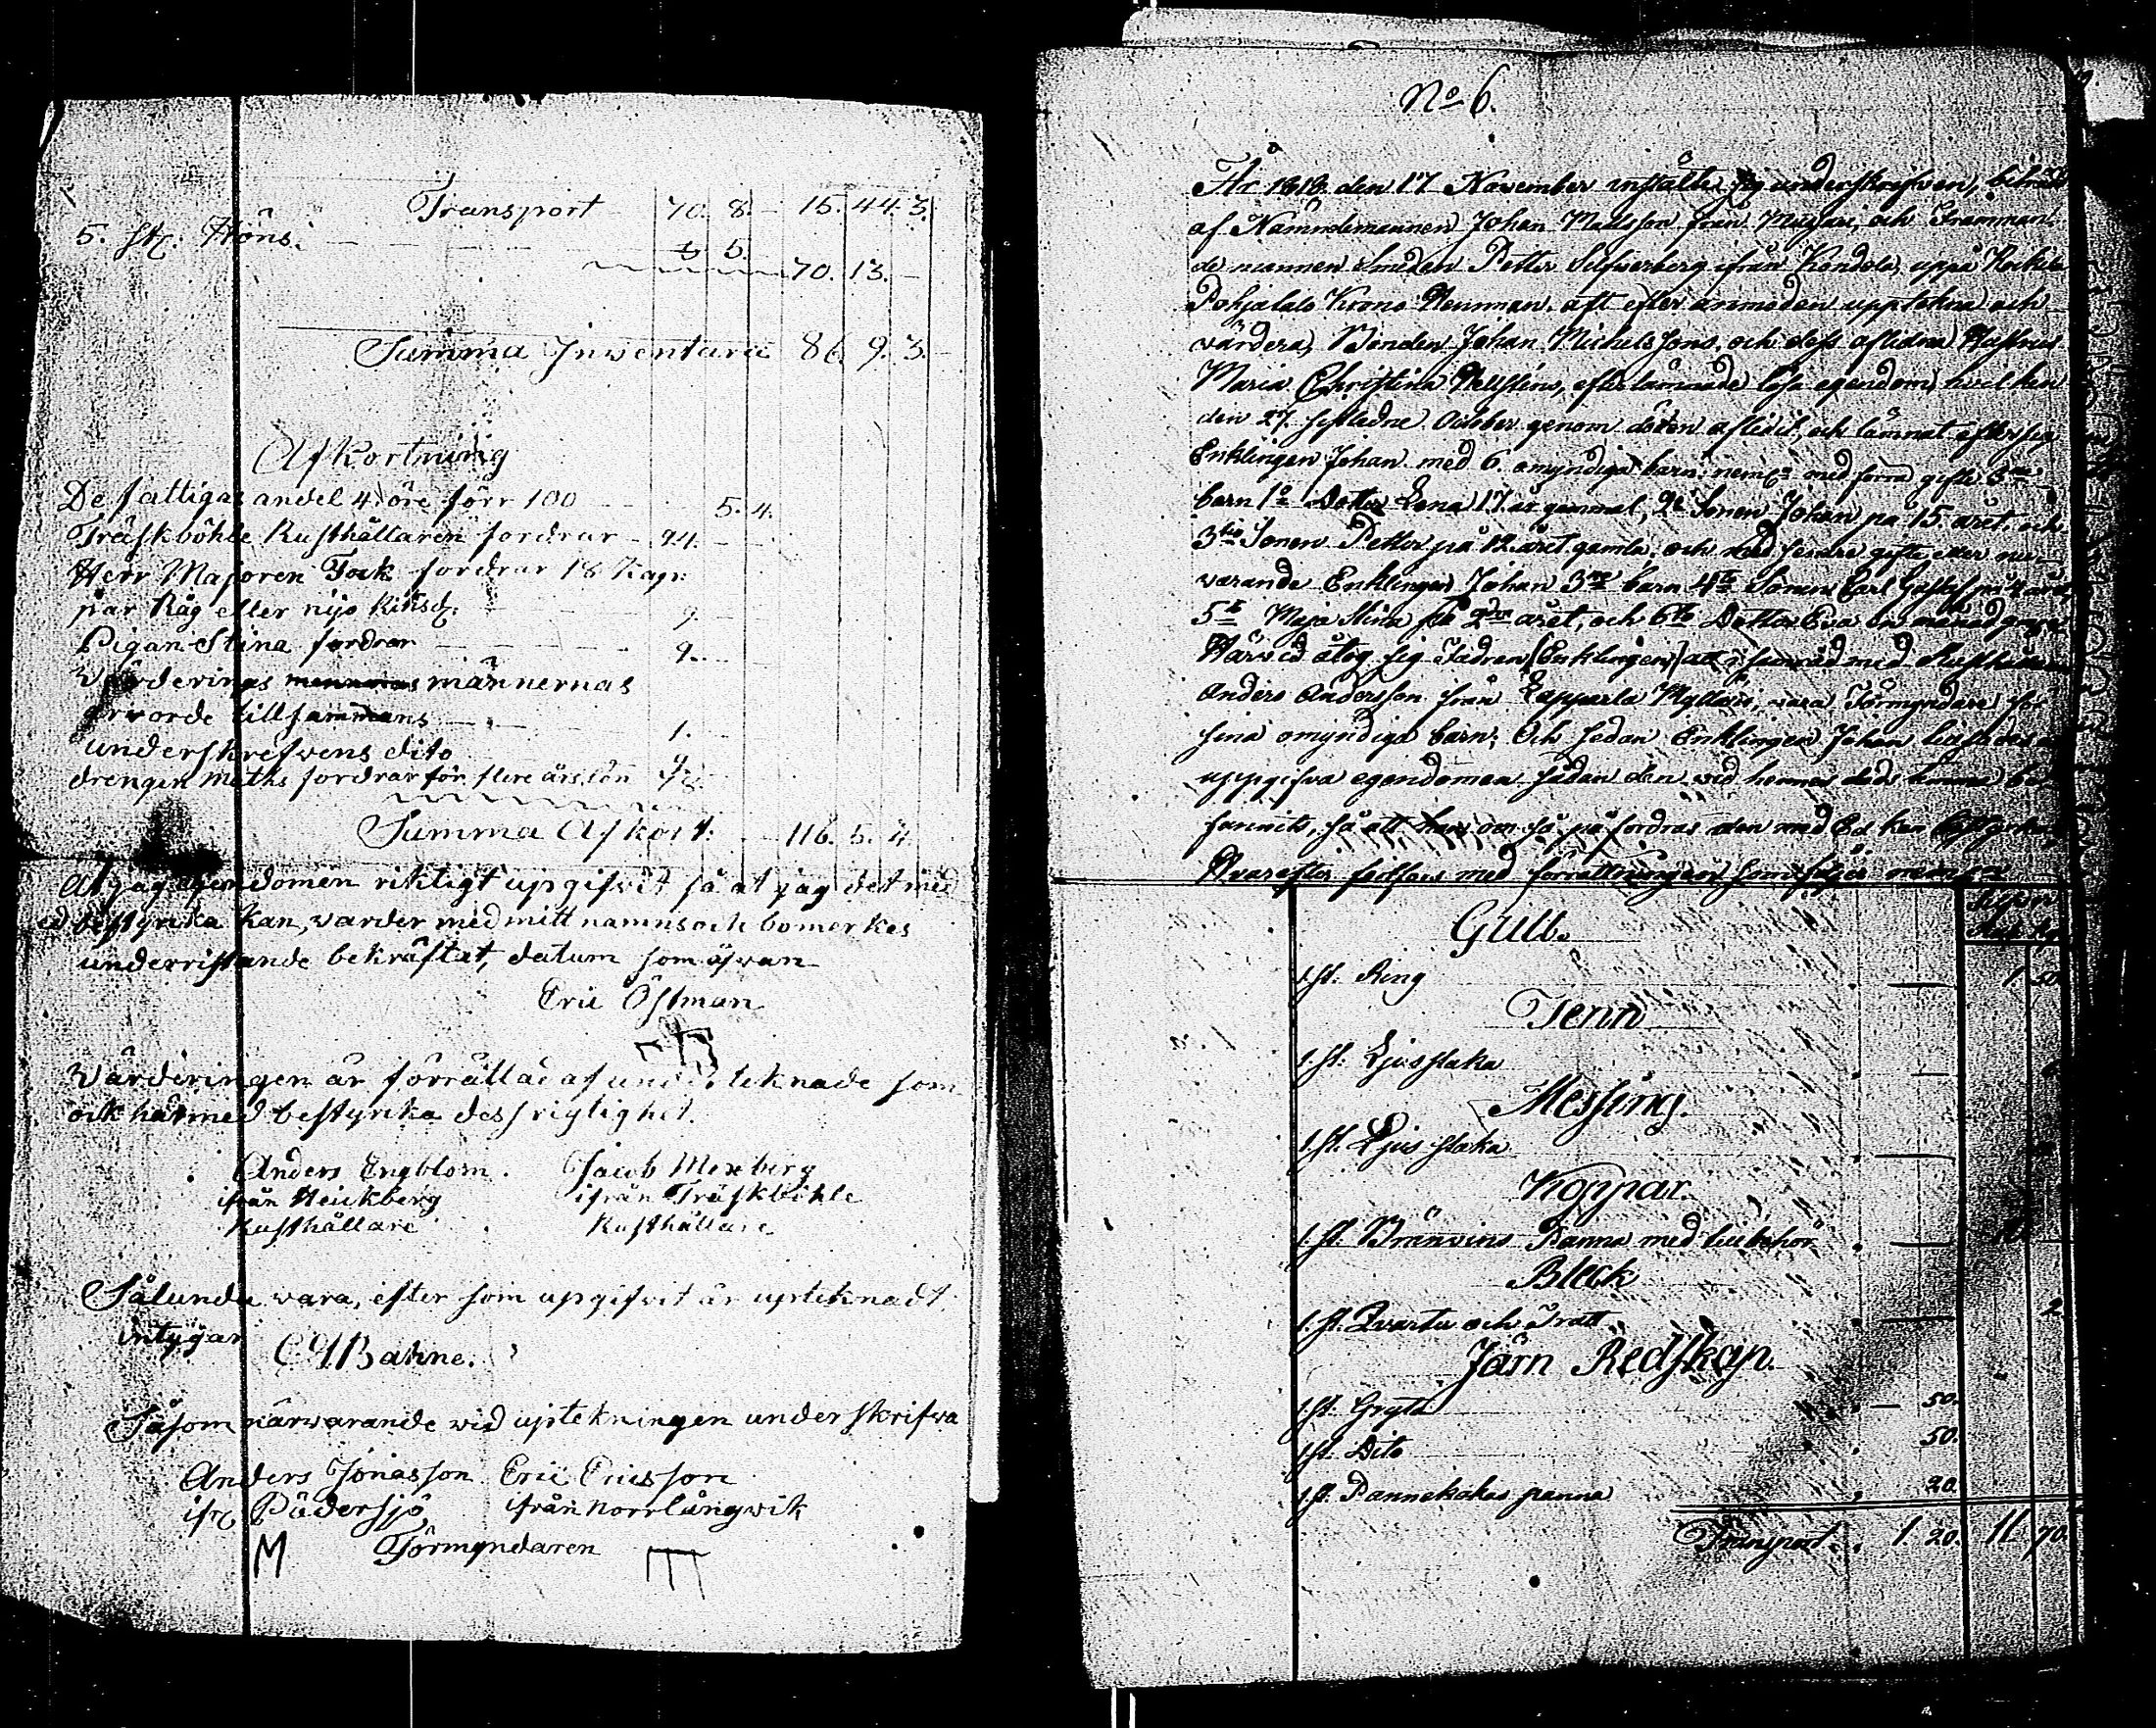 Transport 70. 8. – 15. 44. 3.
5. st. Höns. 5.
70. 13. –
Summa Inventarii 86. 9. 3.
Afkortning
De fattigas andel 4. öre förr 100 5. 4.
Träskböhle Rusthållaren fordrar 94. –
Herr Majoren Fock fordrar 18 Kapr
par Råg eller nijo Riksd. 9. –
Pigan Stina fordrar
Värderings männernas
arvorde tillsammans 1. –
underskrefvens dito
drengen Maths fordrar för flere års lön
Summa Afkort. 116. 5. 4.
At jag egendomen riktigt upgifvit så at jag det med
ed bestyrka kan, varder med mitt namns och bomerkes
underristande bekräftat, datum som ofvan
Eric Östman
Värderingen är förrättad af underteknade som
ock härmed bestyrka dess rigtighet.
Anders Engblom. Jacob Mexberg
ifrån Heickberg ifrån Träskböhle
Rusthållare Rusthållare
Sålunda vara, efter som upgifvit är upteknadt,
intygar
Bahne.
Såsom närwarande wid uptekningen underskrifva
Anders Jonasson Eric Ericsson
ifr. Pädersjö ifrån Norrlångwik
M Förmyndaren
No 6.
År 1818 den 17 November instälte sig underskrefven, biträdd
af Nämndemannen Johan Matsson från och Främman
de mannen Smeden Petter Silfwerberg ifrån Kondola, uppå
Pohjalais Krono Hemman, att efter anmodan upptekna och
värdera, Bonden Johan Michelssons, och dess aflidna Hustrus
Maria Christina Hellstens, efterlämnade lösa egendom, hvilken
den 27 sistledne October genom döden aflidit, och lämnat efter sig
Enklingen Johan med 6. omyndiga barn: neml. med förra gifte 3ne
barn 1o Dotter Lena 17. år gammal, 2o Sonen Johan på 15. året, och
3tio Sonen Petter på 12. året gamla, och med senare gifte eller nu-
varande Enklingen Johan 3ne barn 4to Sonen Carl Gustaf på
5to Maja Stina på 2dra året, och 6to Dotter Eva en månad
Härvid åtog sig Fadren (Enklingen) att i samråd med Rusthållaren
Anders Andersson från Lapparla Myllari, vara Förmyndare för
sina omyndiga barn; Och sedan Enklingen Johan
uppgifva egendomen sådan den vid hennes död
funnits, så att han om så på fordras den med Ed kan
Hvarefter med förrättningen som följer
Gull.
1. st. Ring 1. 50.
Tenn
1. st. Ljusstaka
Messing.
1. st. Ljus staka
Koppar.
1. st. Bränvins Panna med tillbehör
Bleck
1. st. Qvarter och Tratt 2.
Järn Redskap.
1. st. Gryta 50.
1. st. Dito 50.
1. st. Pannekakas panna 20.
Transport. 1. 20. 11. 70.